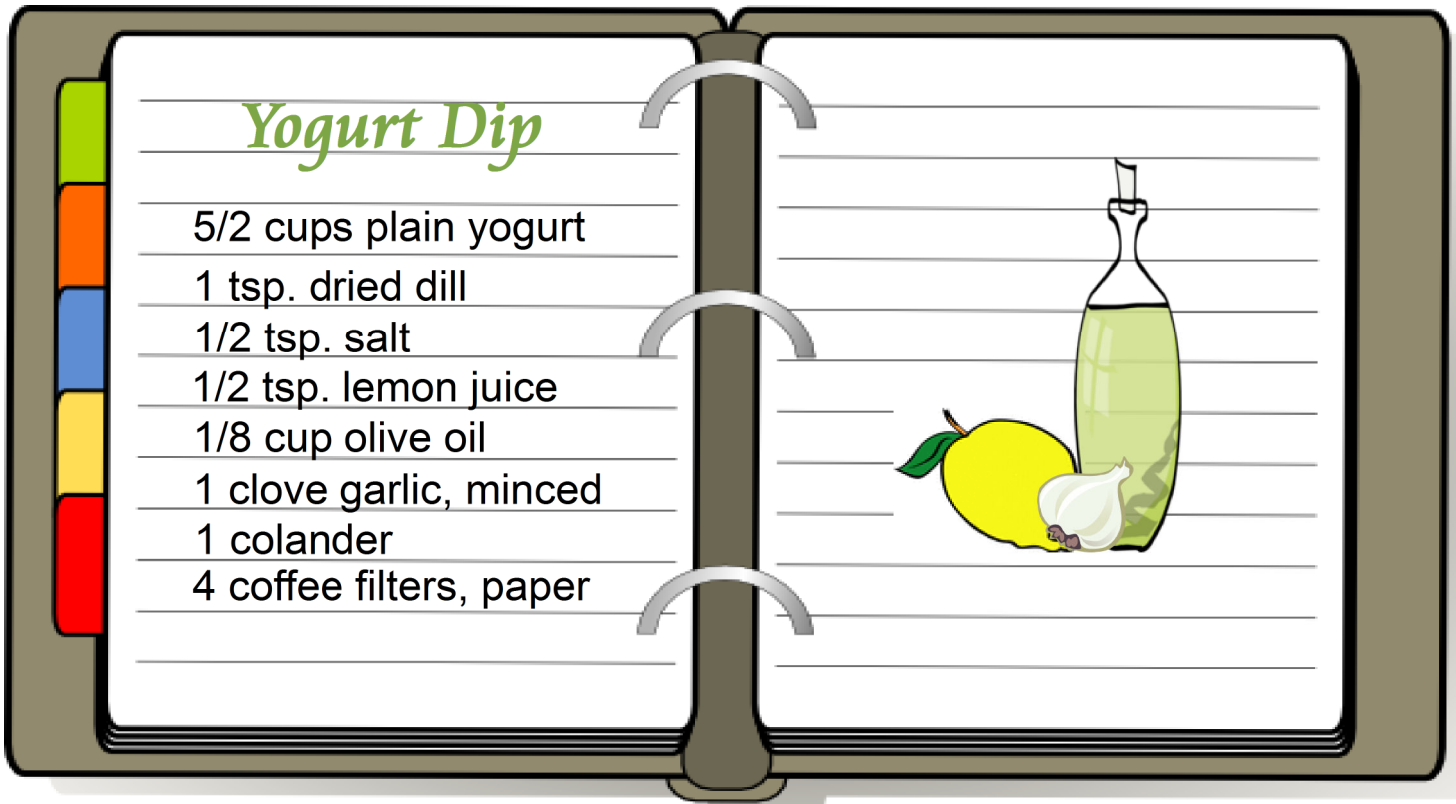 Yogurt Dip
5/2 cups plain yogurt
1 tsp. dried dill
1/2 tsp. salt
1/2 tsp. lemon juice
1/8 cup olive oil
1 clove garlic, minced
1 colander
4 coffee filters, paper